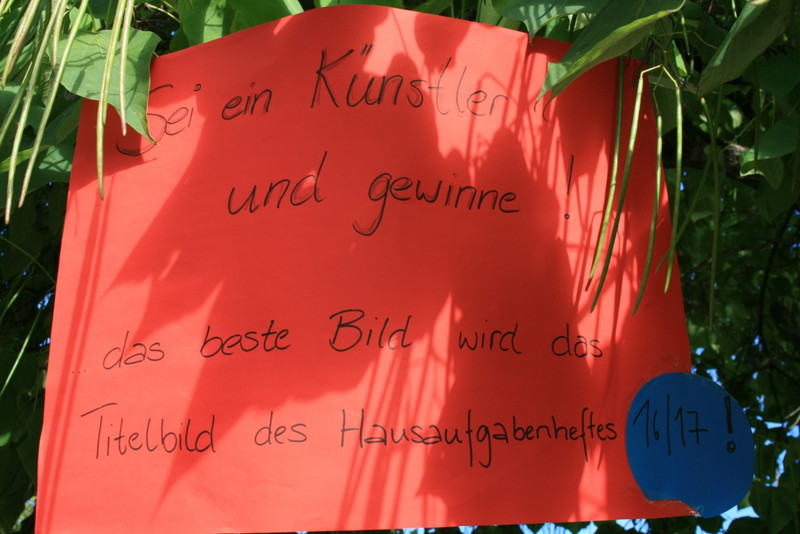 Sei ein Künstler
und gewinne !
... das beste Bild wird das
Titelbild des Hausaufgabenheftes 16/17 !